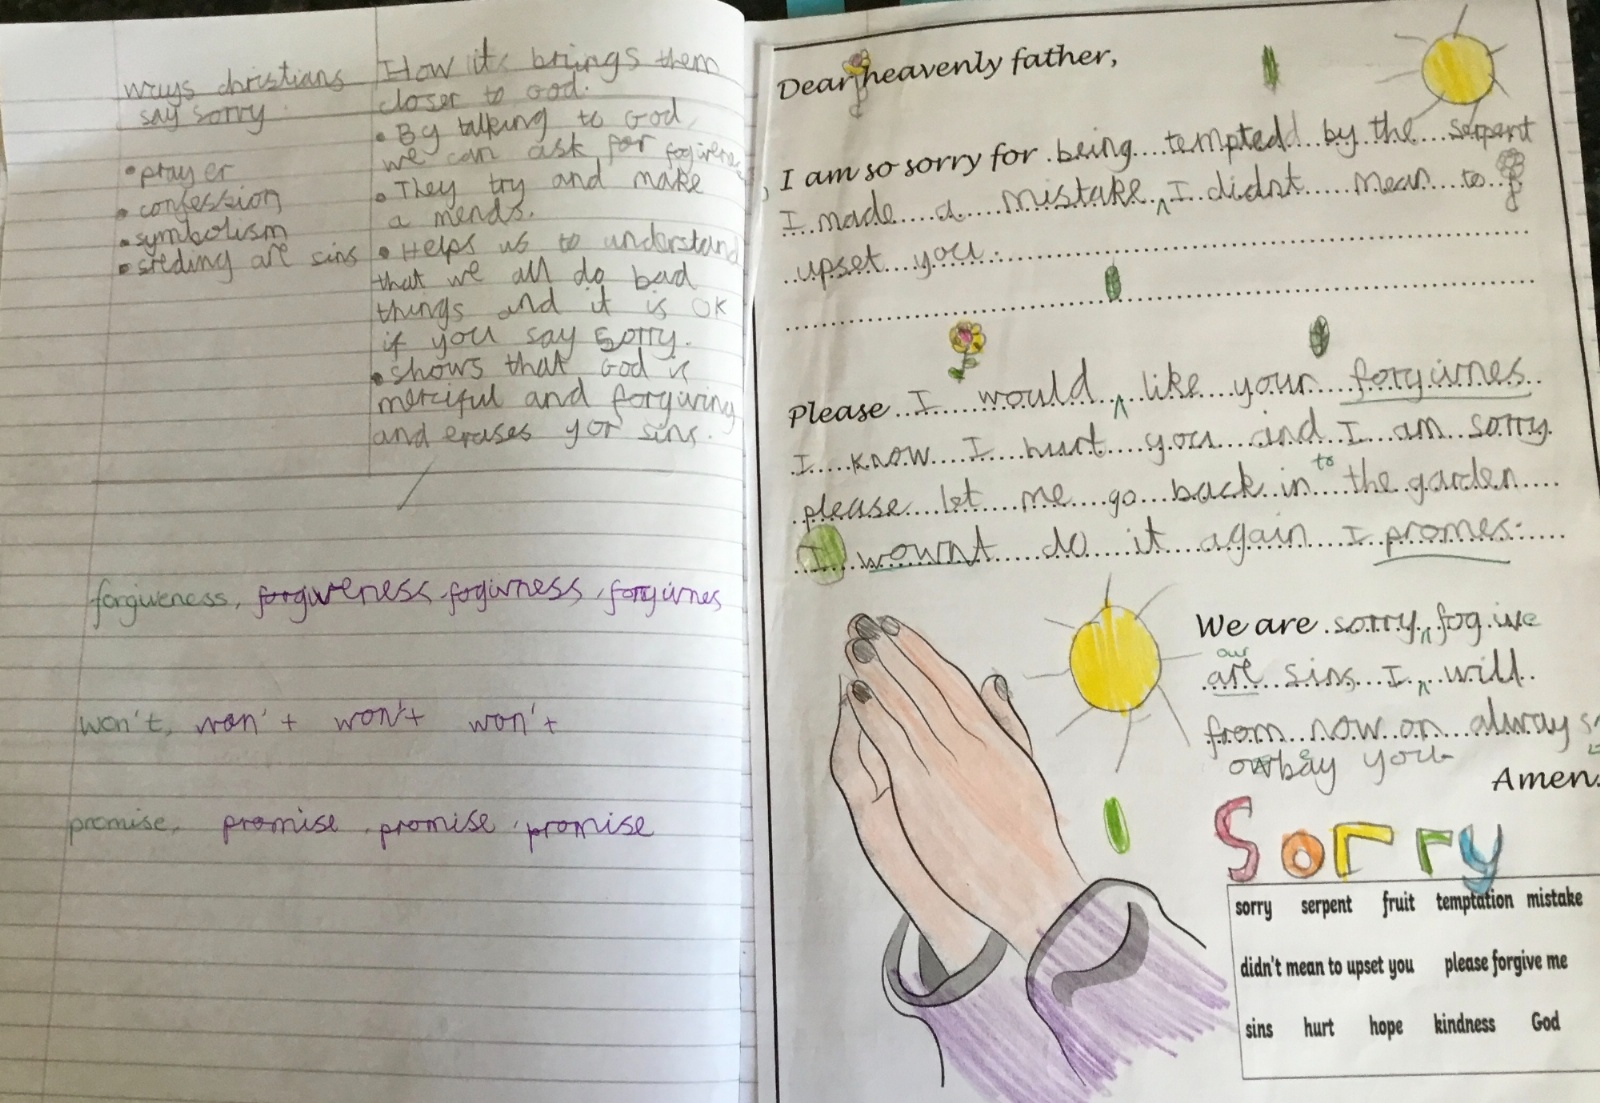 ways christians
say sorry
• prayer
• confession
• symbolism
• steding are sins
How it brings them
closer to God.
• By talking to God
we can ask for
• They try and make
a mends.
• Helps us to understand
that we all do bad
things and it is OK
if you say sorry.
• shows that God is
merciful and forgiving
and erases yor sins.
forgiveness, forgiveness, fogivness, forgivnes
won't, won't won't won't
promise, promise, promise, promise
Dear heavenly father,
I am so sorry for being tempted by the serpent
I made a mistake ^ I didnt mean to
upset you.
Please I would ^ like your forgivnes
I know I hurt you and I am sorry
please let me go back in to the garden
I wount do it again I promes.
We are sorry ^ fogive
our
are sins I ^ will
from now on alway s
you
Amen.
Sorry
sorry serpent fruit temptation mistake
didn't mean to upset you please forgive me
sins hurt hope kindness God